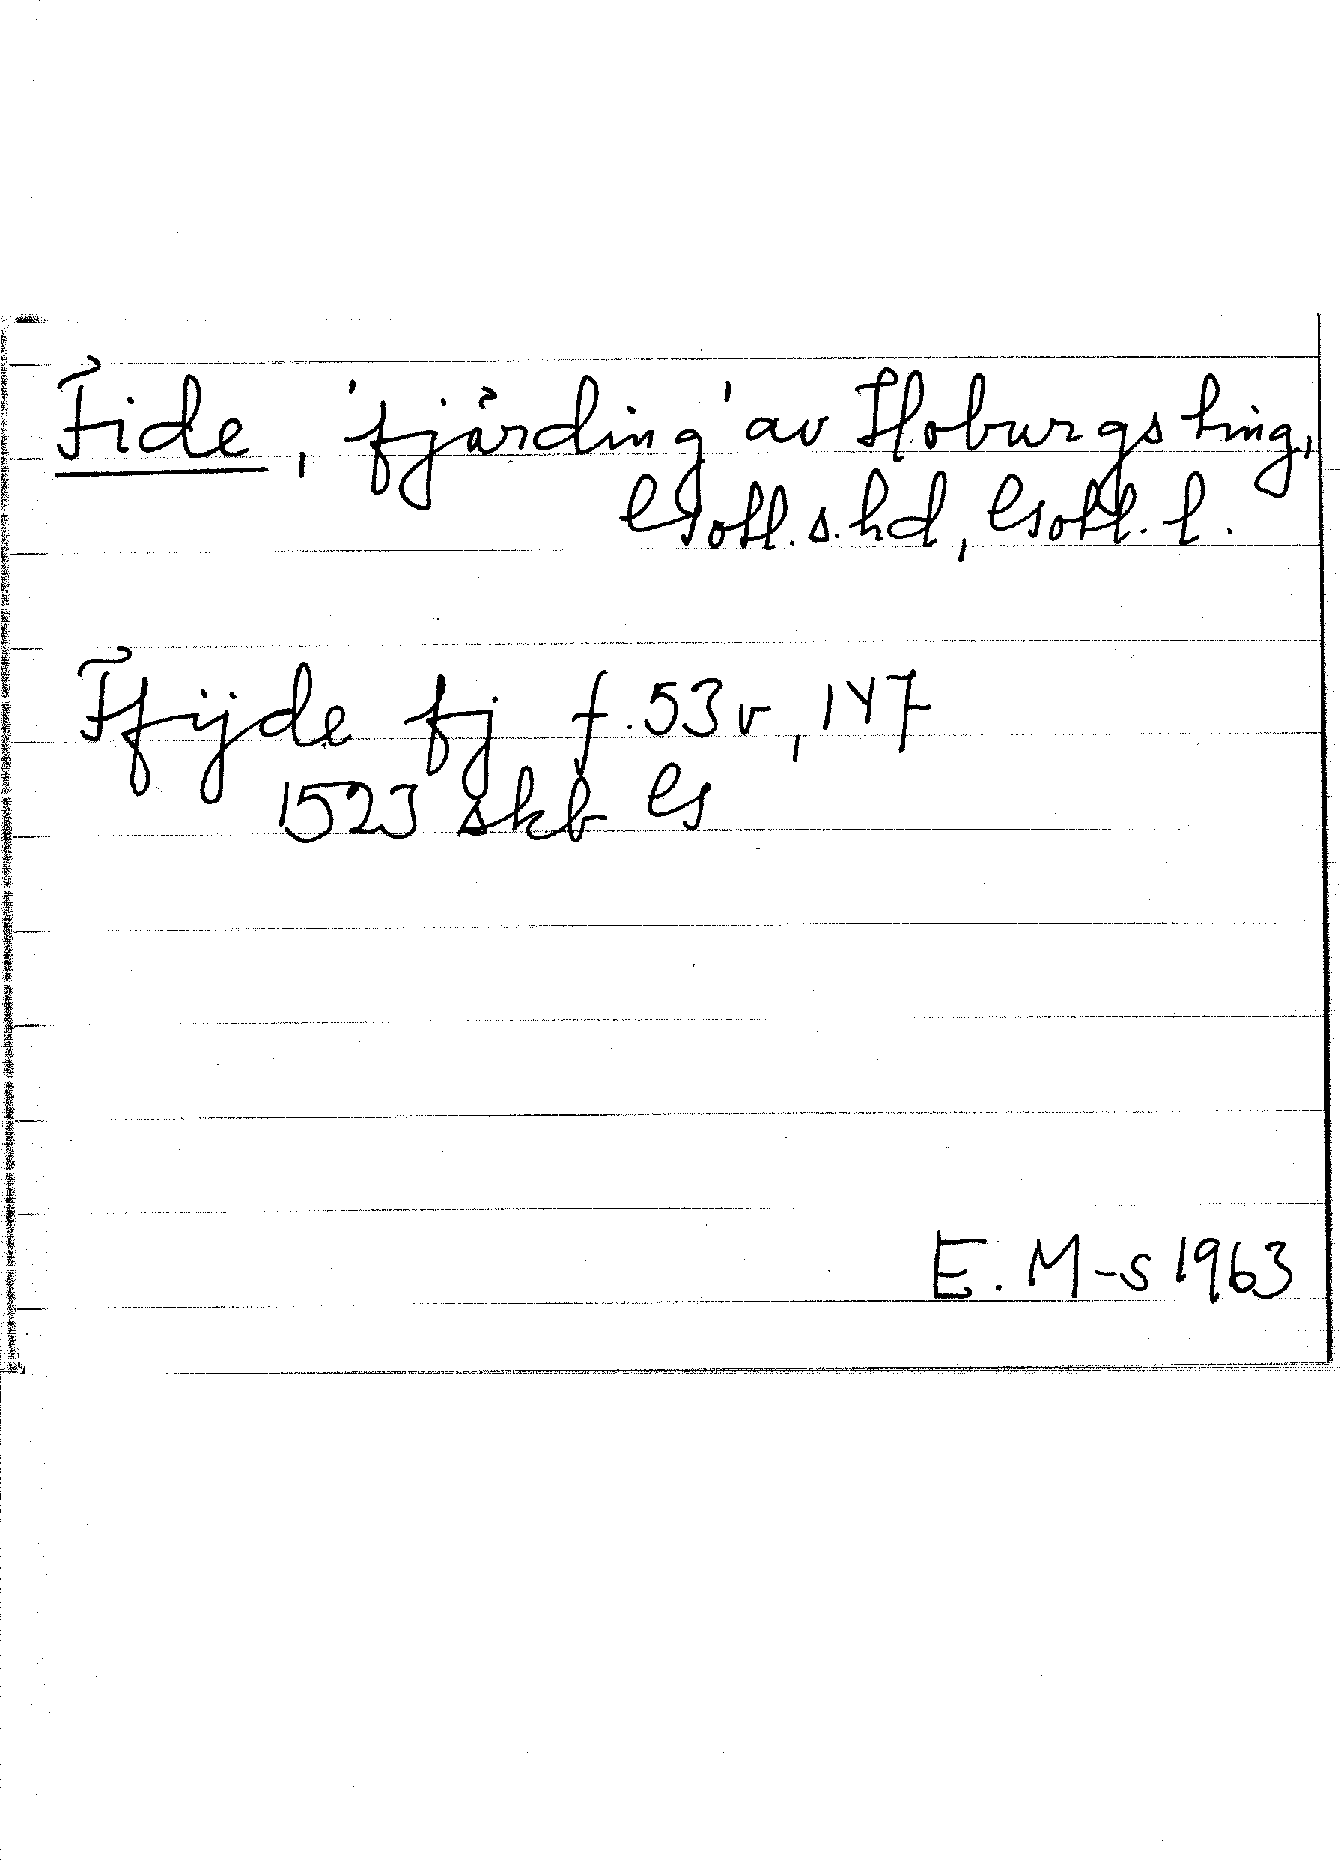 Fide, 'fjärding' av Hoburgs ting,
Gotl. s. hd, Gotl. l.
Ffijde fj f. 53 v, 147
1523 skb G
E. M-s 1963